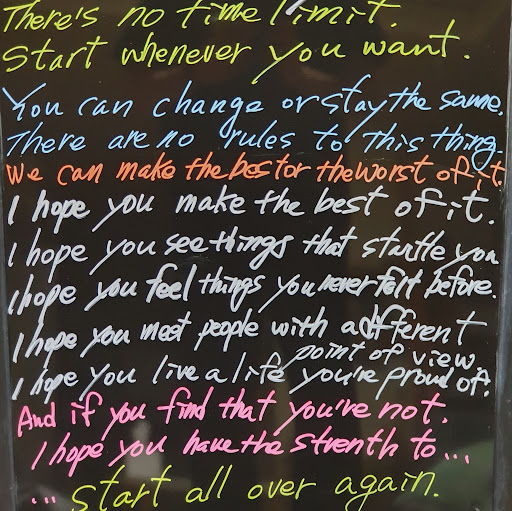 There's no time limit.
Start whenever you want.
You can change or stay the same.
There are no rules to this thing.
We can make the best or the worst of it.
I hope you make the best of it.
I hope you see things that startle you
I hope you feel things you never felt before.
I hope you meet people with a different
point of view
I hope you live a life you're proud of.
And if you find that you're not.
I hope you have the strenth to...
... start all over again.